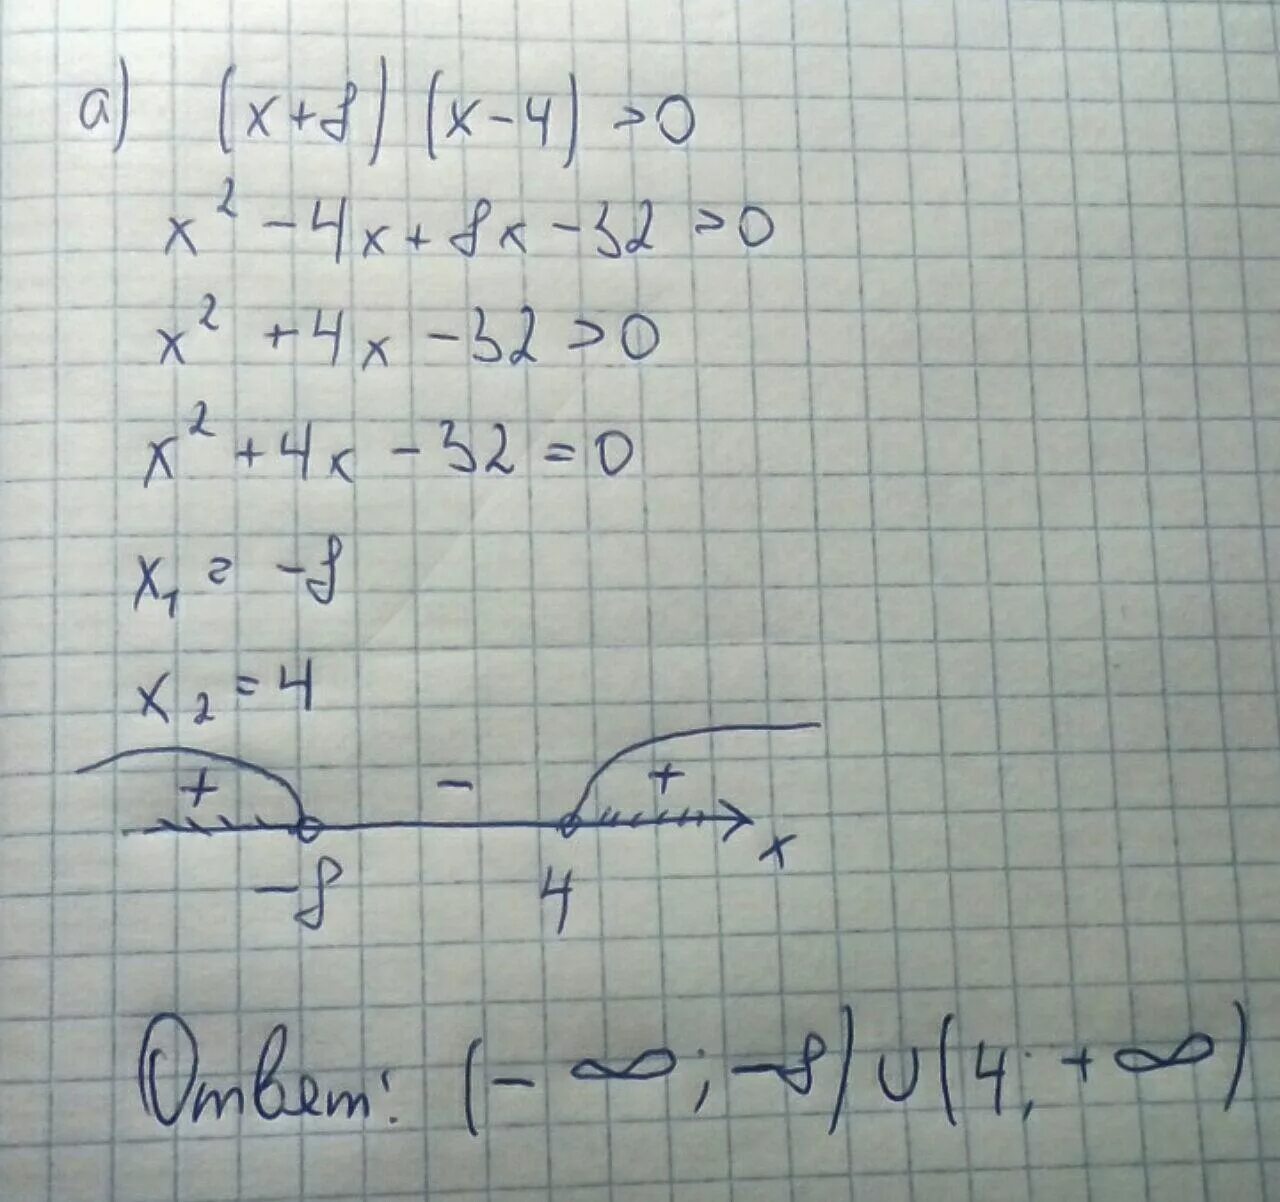 а) (x+8) (x-4) >0
x² -4x+8x-32>0
x² +4x-32>0
x² +4x-32=0
x₁ = -8
x₂ =4
+ - +
-8 4 x
Ответ: (-∞; -8)∪(4; +∞)